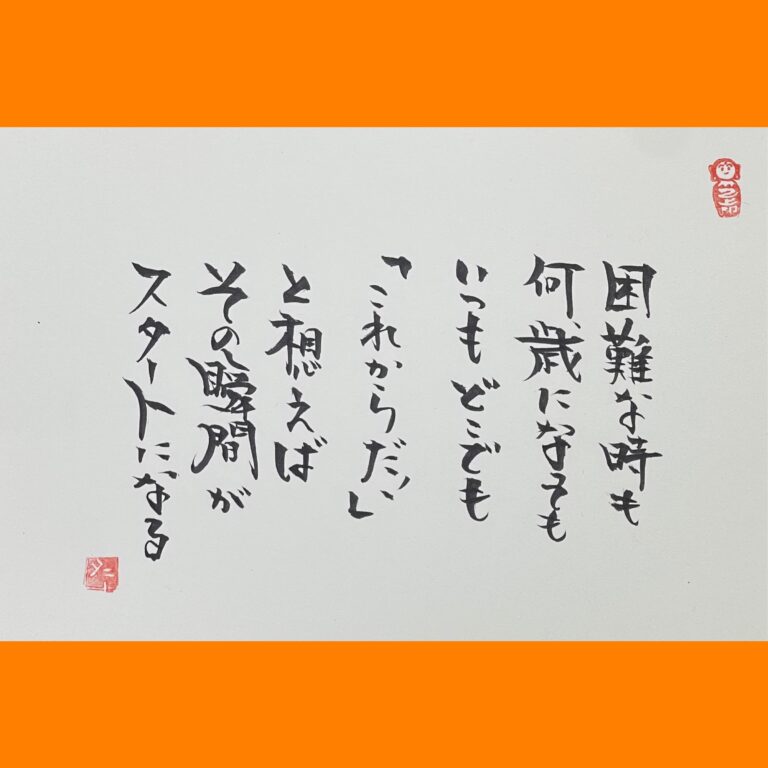 困難な時も
何歳になっても
いつもどこでも
「これからだ」
と想えば
その瞬間が
スタートになる